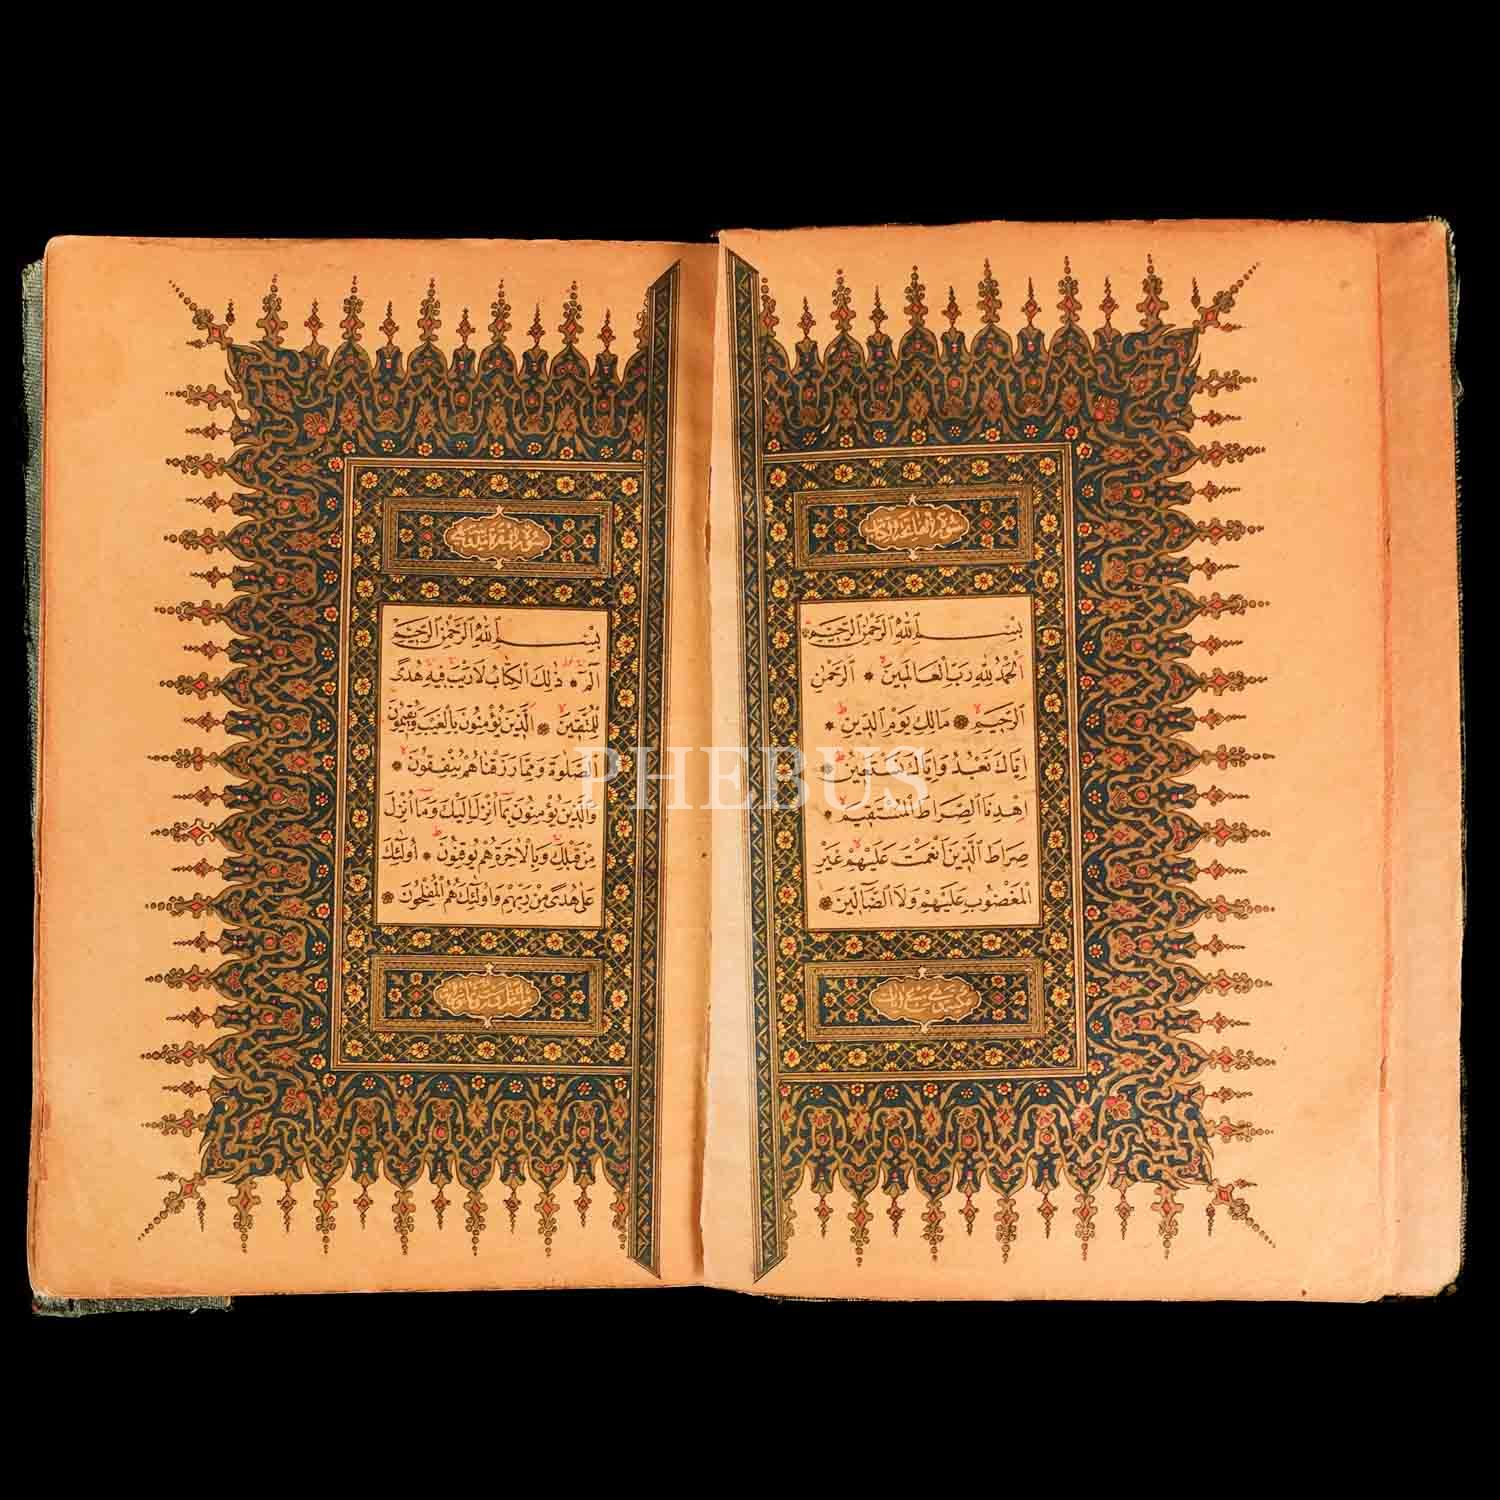 سورة الفاتحة الكتاب
بِسْمِ ٱللَّهِ ٱلرَّحْمٰنِ ٱلرَّحِيمِ
اَلْحَمْدُ لِلّٰهِ رَبِّ الْعَالَمِينَ اَلرَّحْمٰنِ
الرَّحِيمِ مَالِكِ يَوْمِ الدِّينِ
اِيَّاكَ نَعْبُدُ وَاِيَّاكَ نَسْتَعِينُ
اِهْدِنَا الصِّرَاطَ الْمُسْتَقِيمَ
صِرَاطَ الَّذِينَ اَنْعَمْتَ عَلَيْهِمْ غَيْرِ
الْمَغْضُوبِ عَلَيْهِمْ وَلَا الضَّالِّينَ
مكية وهي سبع ايات
سورة البقرة
بِسْمِ ٱللَّهِ ٱلرَّحْمٰنِ ٱلرَّحِيمِ
الٓمٓ ذٰلِكَ الْكِتَابُ لَا رَيْبَ فِيهِ هُدًى
لِلْمُتَّقِينَ اَلَّذِينَ يُؤْمِنُونَ بِالْغَيْبِ وَيُقِيمُونَ
الصَّلٰوةَ وَمِمَّا رَزَقْنَاهُمْ يُنْفِقُونَ
وَالَّذِينَ يُؤْمِنُونَ بِمَا اُنْزِلَ اِلَيْكَ وَمَا اُنْزِلَ
مِنْ قَبْلِكَ وَبِالْاٰخِرَةِ هُمْ يُوقِنُونَ اُولٰئِكَ
عَلٰى هُدًى مِنْ رَبِّهِمْ وَاُولٰئِكَ هُمُ الْمُفْلِحُونَ
PHEBUS